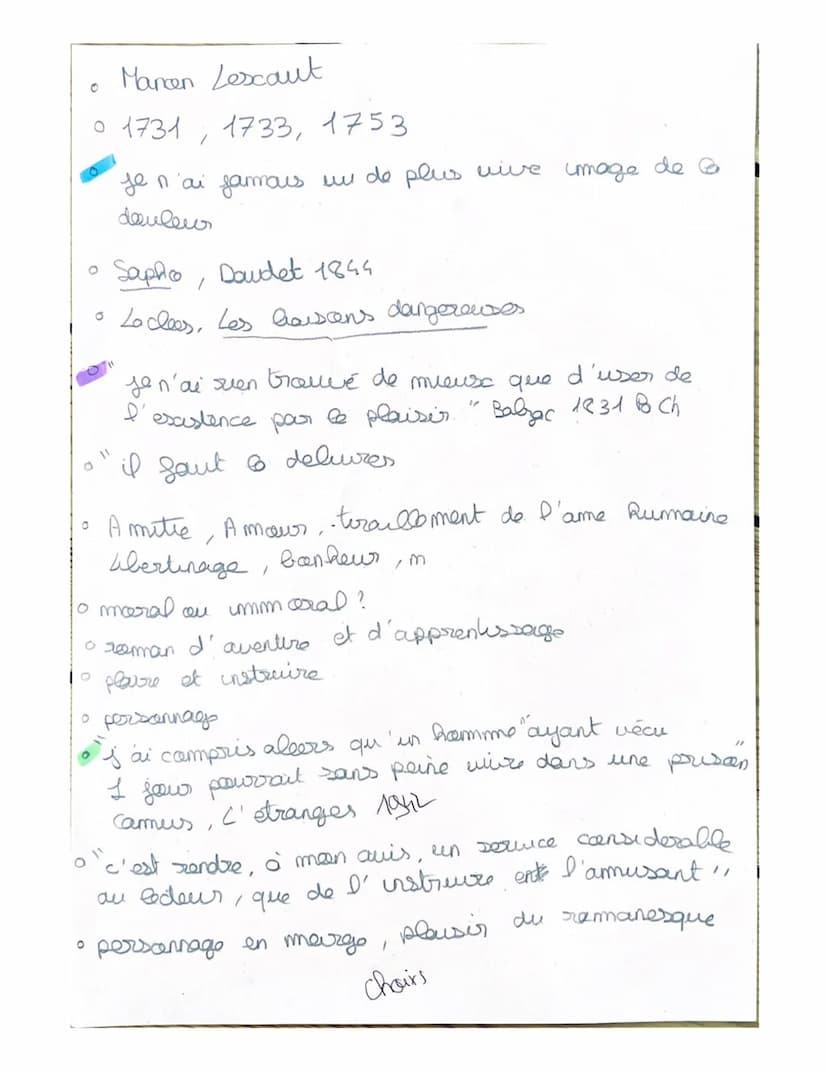 Manon Lescaut
1731, 1733, 1753
je n'ai jamais vu de plus vive image de la
douleur
Sapho, Daudet 1844
Laclos, Les liaisons dangereuses
"je n'ai rien trouvé de mieux que d'user de
l'existence par le plaisir" Balzac 1831 P Ch
"il faut la delivrer
Amitie, Amour, tiraillement de l'ame humaine
libertinage, bonheur, m
moral ou immoral ?
roman d'aventure et d'apprentissage
plaire et instruire
personnage
"j'ai compris alors qu'un homme "ayant vécu
1 jour pourrait sans peine vivre dans une prison"
Camus, L'etranger 1942
"c'est rendre, à mon avis, un service considerable
au lecteur, que de l'instruire l'amusant"
personnage en marge, plaisir du romanesque